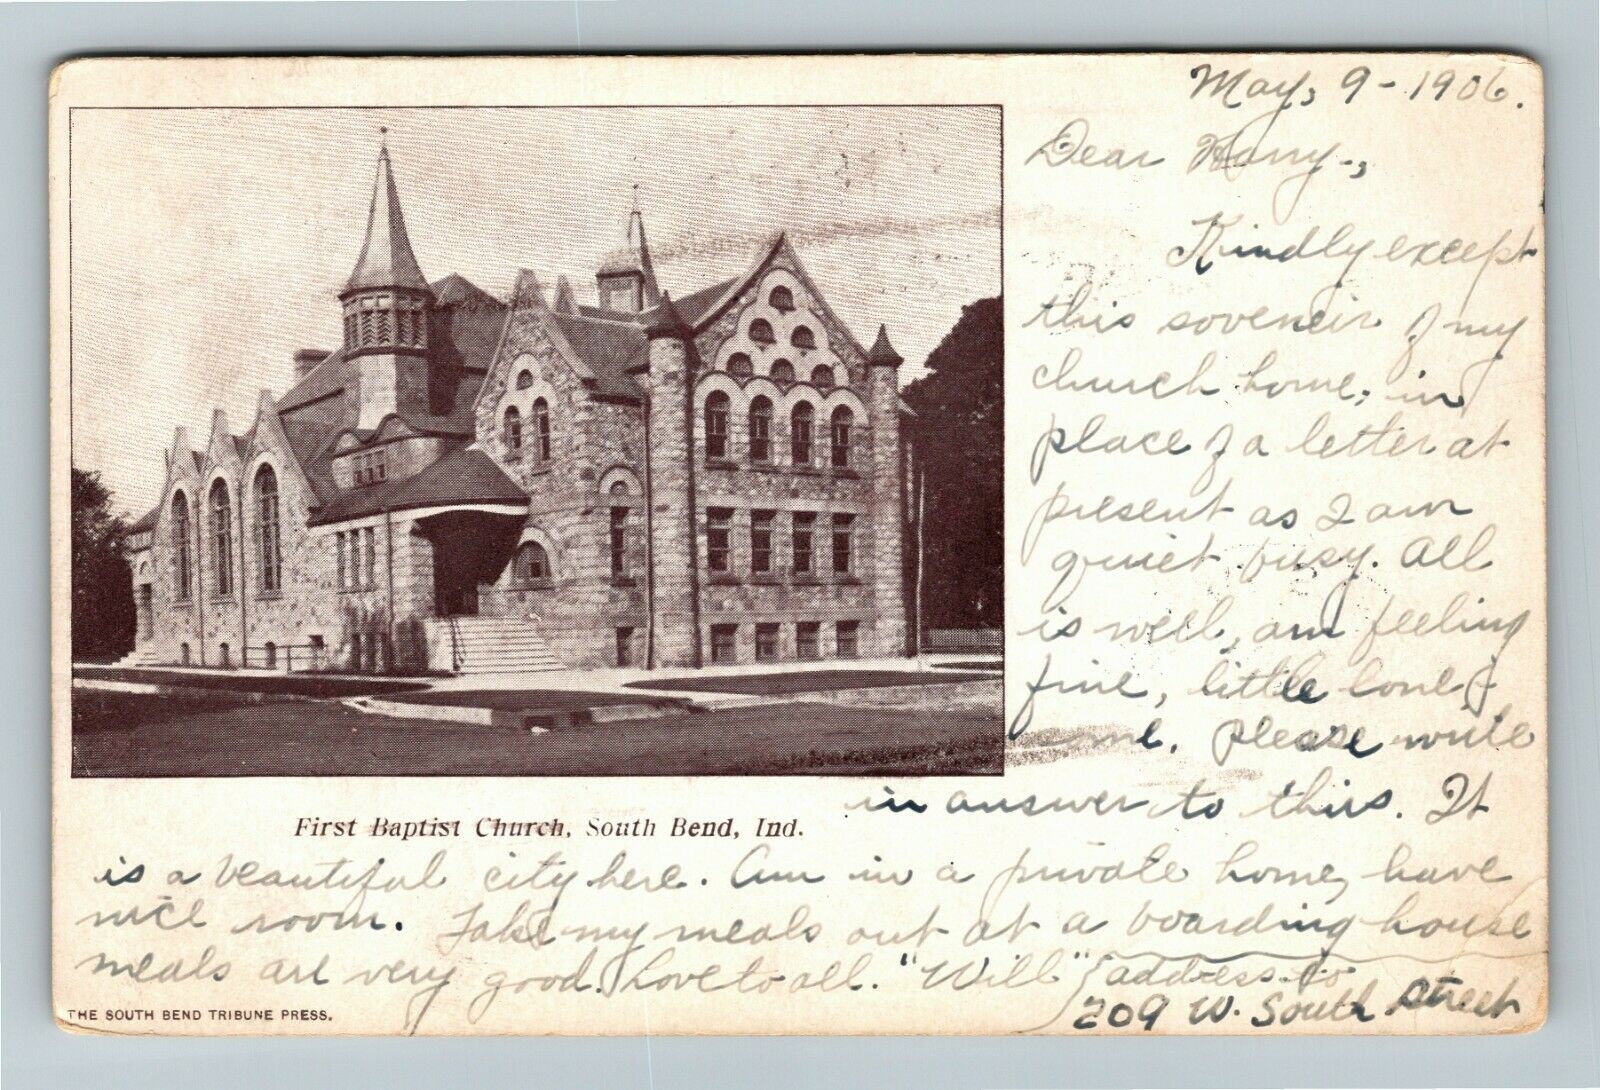 May, 9-1906.
Dear Harry-,
Kindly except
this soveneir of my
church home, in
place of a letter at
present as I am
quiet busy. All
is well, am feeling
fine, little lonely
me. Please write
in answer to this. It
First Baptist Church, South Bend, Ind.
is a beautiful city here. Am in a private home, have
nice room. Take my meals out at a boarding house
meals are very good. Love to all. "Will" address to
209 W. South Street
THE SOUTH BEND TRIBUNE PRESS.